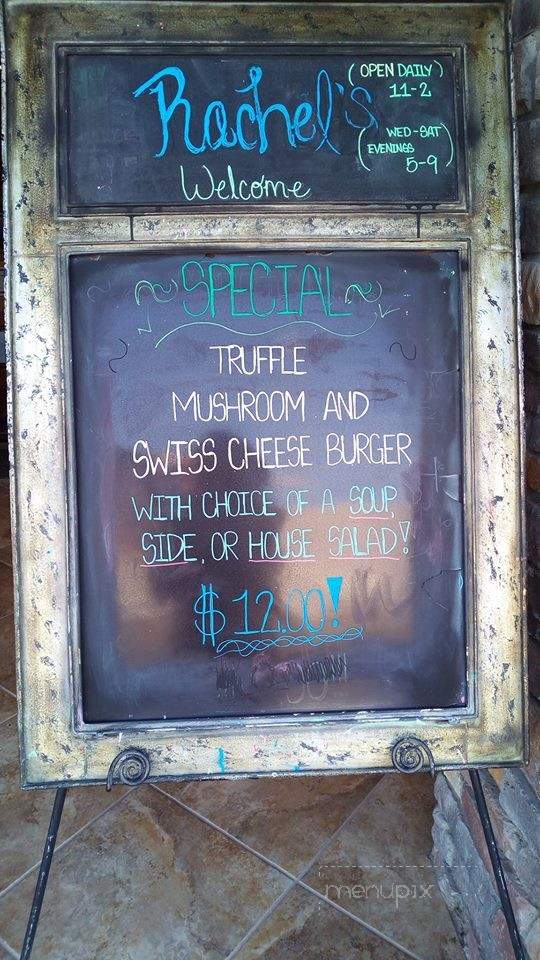 Rachel's
(OPEN DAILY)
11-2
(WED-SAT)
EVENINGS
5-9
Welcome
~SPECIAL~
TRUFFLE
MUSHROOM AND
SWISS CHEESE BURGER
WITH CHOICE OF A SOUP,
SIDE, OR HOUSE SALAD!
$12.00!
menupix